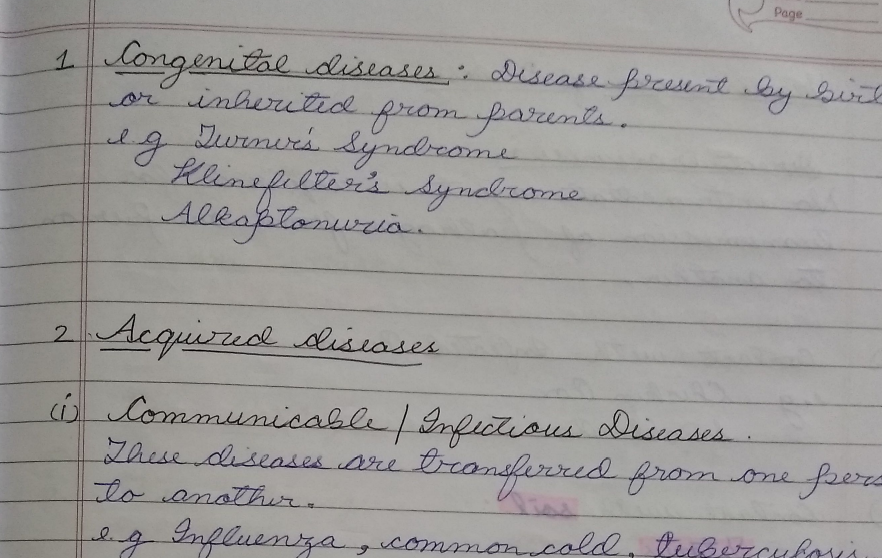 Page
1 Congenital diseases : Disease present by birt
or inherited from parents.
e.g Turner's Syndrome
Klinefilter's Syndrome
Alkaptonuria.
2. Acquired diseases
(i) Communicable / Infectious Diseases.
These diseases are transferred from one pers
to another.
e.g Influenza, common cold, tuberculosis